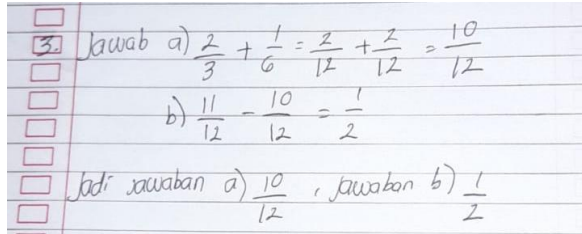 3. Jawab a) 2/3 + 1/6 = 2/12 + 2/12 = 10/12
b) 11/12 - 10/12 = 1/2
Jadi jawaban a) 10/12, jawaban b) 1/2